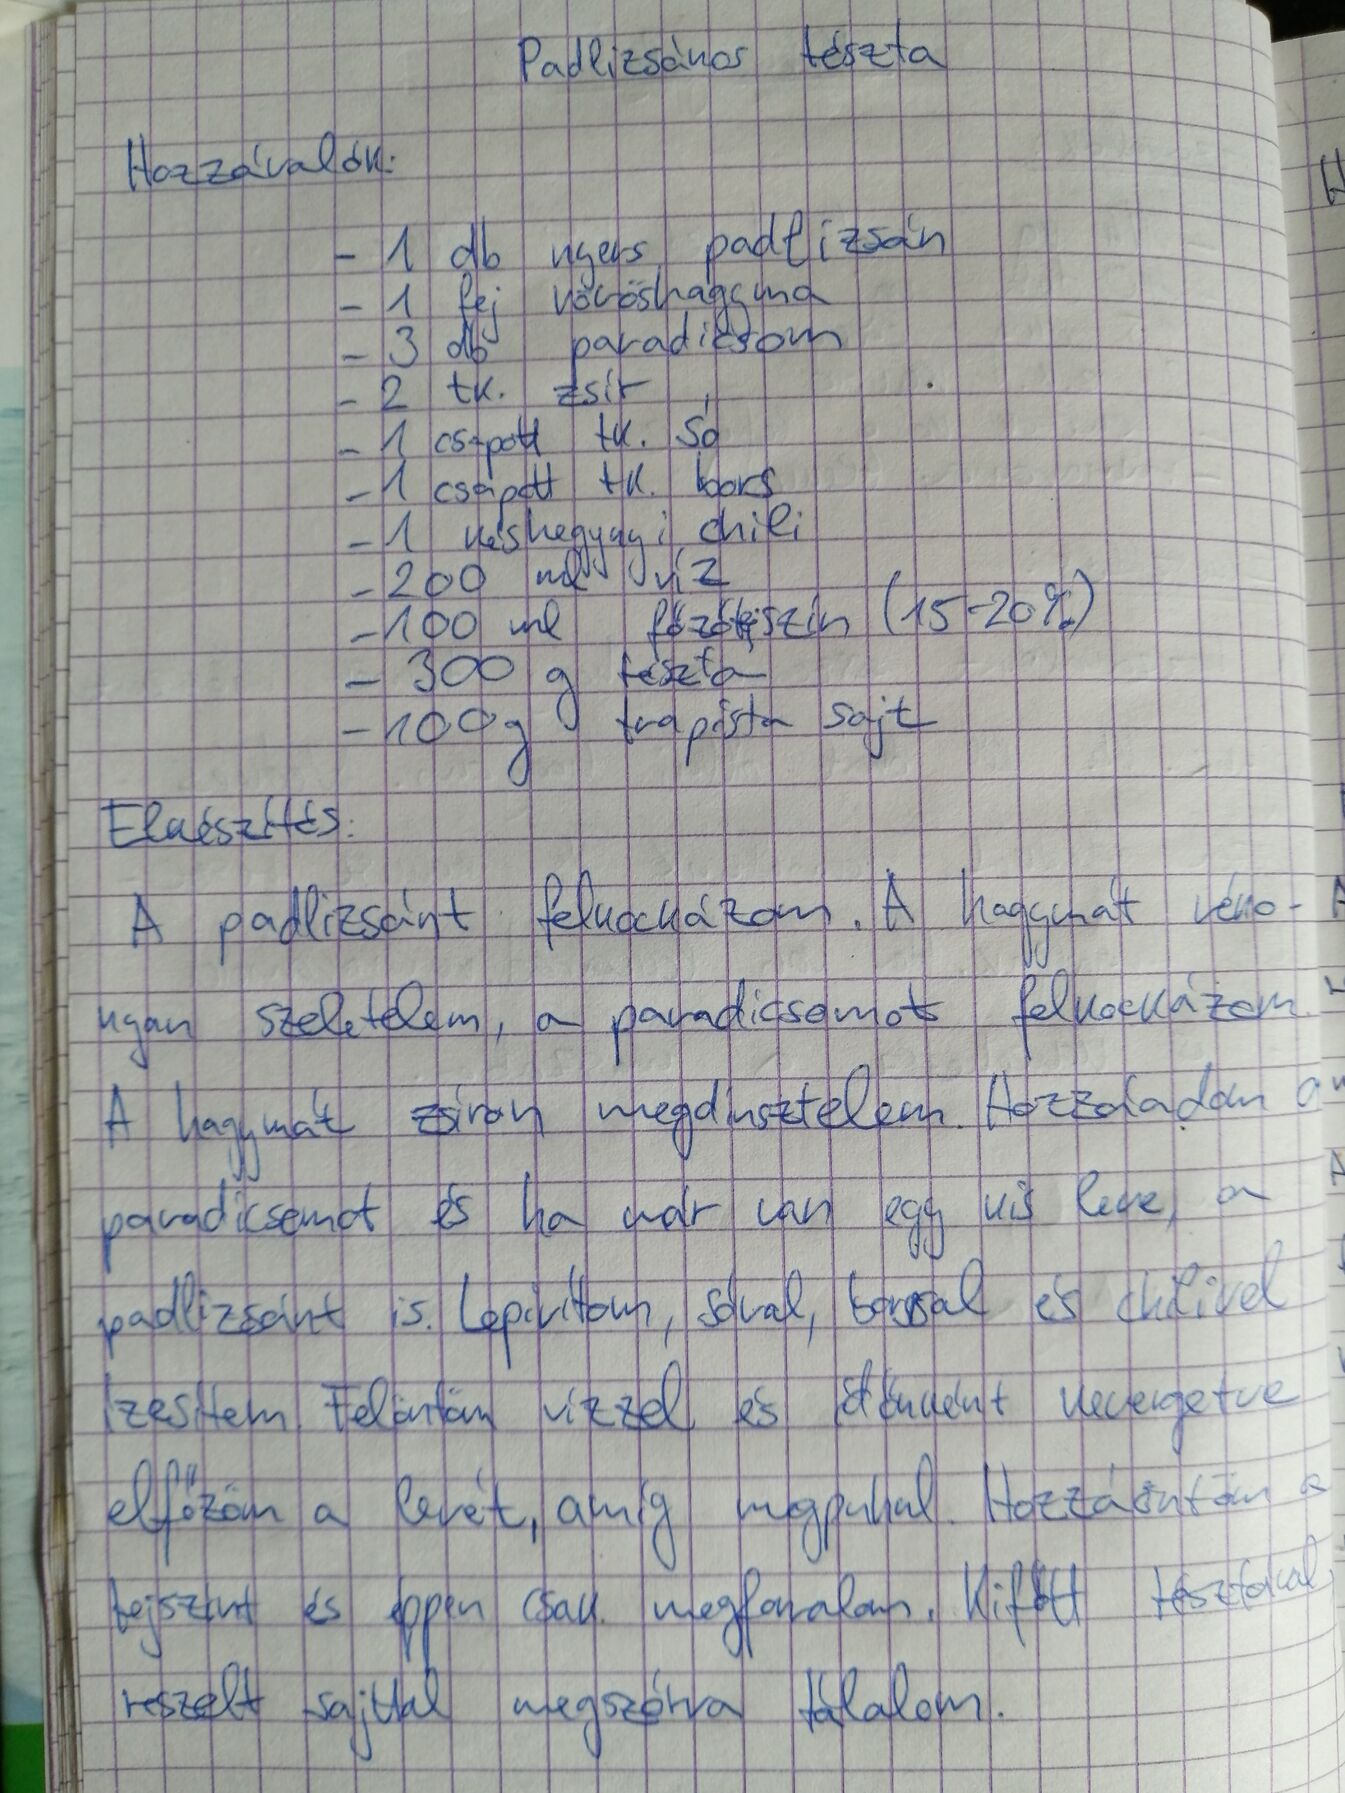 Padlizsános tészta
Hozzávalók:
- 1 db nyers padlizsán
- 1 fej vöröshagyma
- 3 db paradicsom
- 2 tk. zsír
- 1 csapott tk. só
- 1 csapott tk. bors
- 1 késhegynyi chili
- 200 ml víz
- 100 ml főzőtejszín (15-20%)
- 300 g tészta
- 100g trapista sajt
Elkészítés:
A padlizsánt felkockázom. A hagymát véko-
nyan szeletelem, a paradicsomot felkockázom.
A hagymát zsíron megdinsztelem. Hozzáadom a
paradicsomot és ha már van egy kis leve, a
padlizsánt is. Lepirítom, sóval, borssal és chilivel
ízesítem. Felöntöm vízzel és időnként kevergetve
elfőzöm a levét, amíg megpuhul. Hozzáöntöm a
tejszínt és éppen csak megforralom. Kifőtt tésztával,
reszelt sajttal megszórva tálalom.